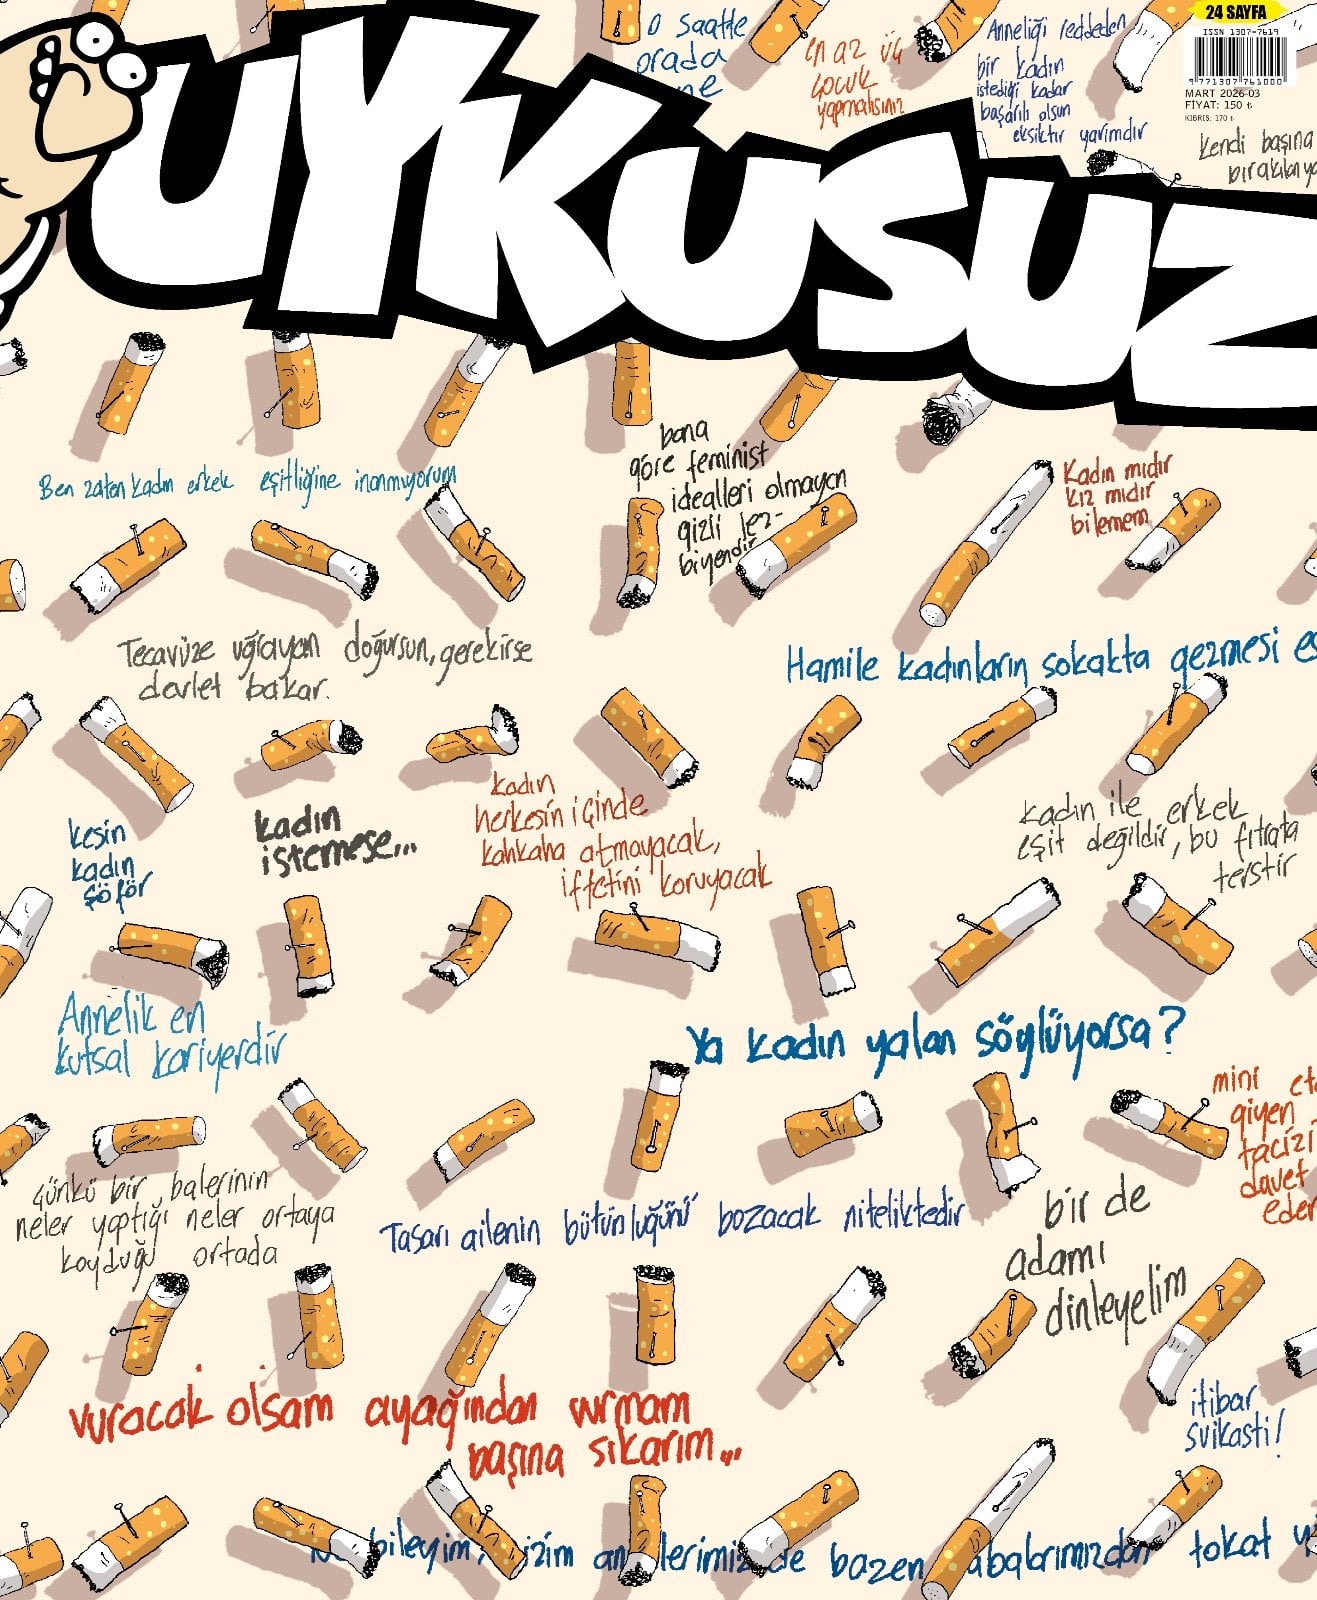 24 SAYFA
ISSN 1307-7619
9 771307 761000
MART 2026-03
FİYAT: 150 ₺
KIBRIS: 170 ₺
UYKUSUZ
O saatte
orada
ne
en az üç
çocuk
yapmalısınız
Anneliği reddeden
bir kadın
istediği kadar
başarılı olsun
eksiktir yarımdır
kendi başına
bırakılan
Ben zaten kadın erkek eşitliğine inanmıyorum
bana
göre feminist
idealleri olmayan
gizli lez-
biyendir
Kadın mıdır
kız mıdır
bilemem
Tecavüze uğrayan doğursun, gerekirse
devlet bakar.
Hamile kadınların sokakta gezmesi
kesin
kadın
şöför
kadın
istemese...
kadın
herkesin içinde
kahkaha atmayacak,
iffetini koruyacak
kadın ile erkek
eşit değildir, bu fıtrata
terstir
Annelik en
kutsal kariyerdir
Ya kadın yalan söylüyorsa?
mini
giyen
tacizi
davet
eder
Çünkü bir balerinin
neler yaptığı neler ortaya
koyduğu ortada
Tasarı ailenin bütünlüğünü bozacak niteliktedir
bir de
adamı
dinleyelim
vuracak olsam ayağından vurmam
başına sıkarım...
itibar
suikasti!
bileyim, bazen tokat